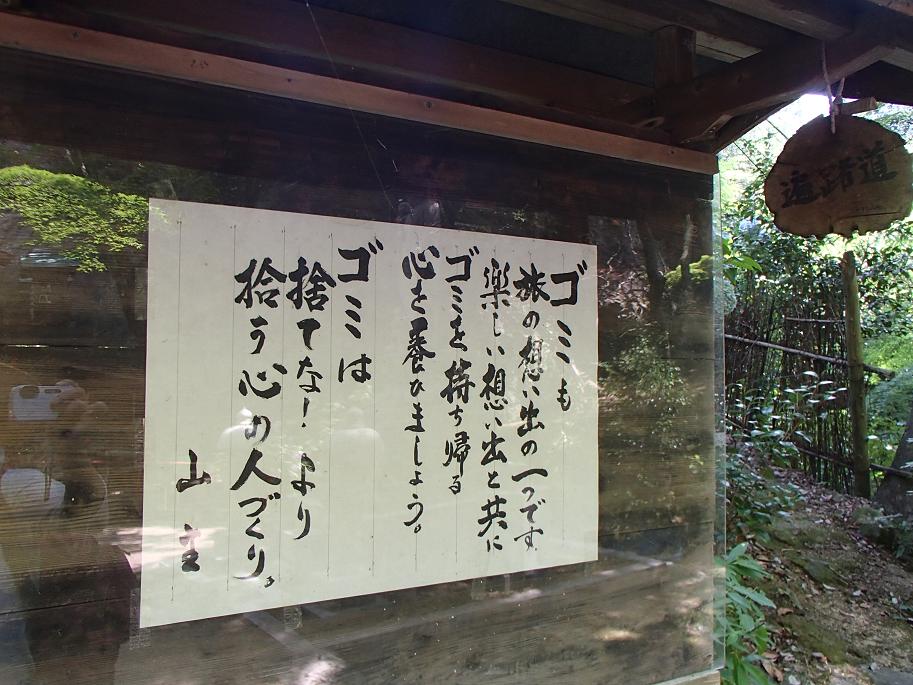 ゴミも
旅の想い出の一つです
楽しい想い出と共に
ゴミを持ち帰る
心を養ひましょう。
ゴミは
捨てな！より
拾う心の人づくり。
山主
遍路道